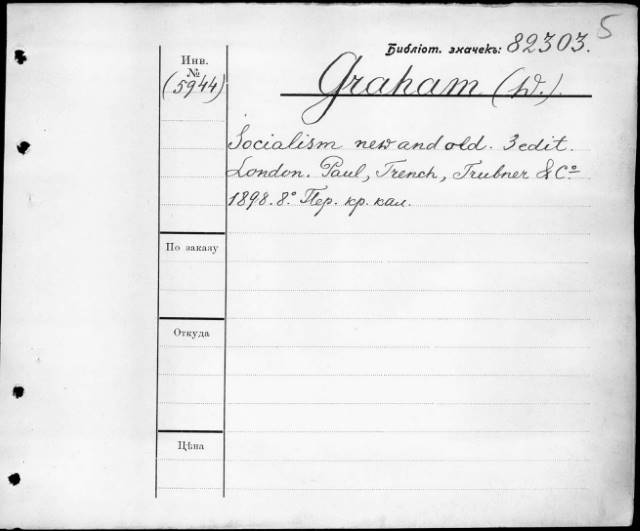 5
Библіот. значекъ: 82303.
Инв.
№
(5944)
Graham (W.).
Socialism new and old. 3 edit.
London. Paul, Trench, Trubner & Cº
1898. 8.º Пер. кр. кал.
По заказу
Откуда
Цѣна